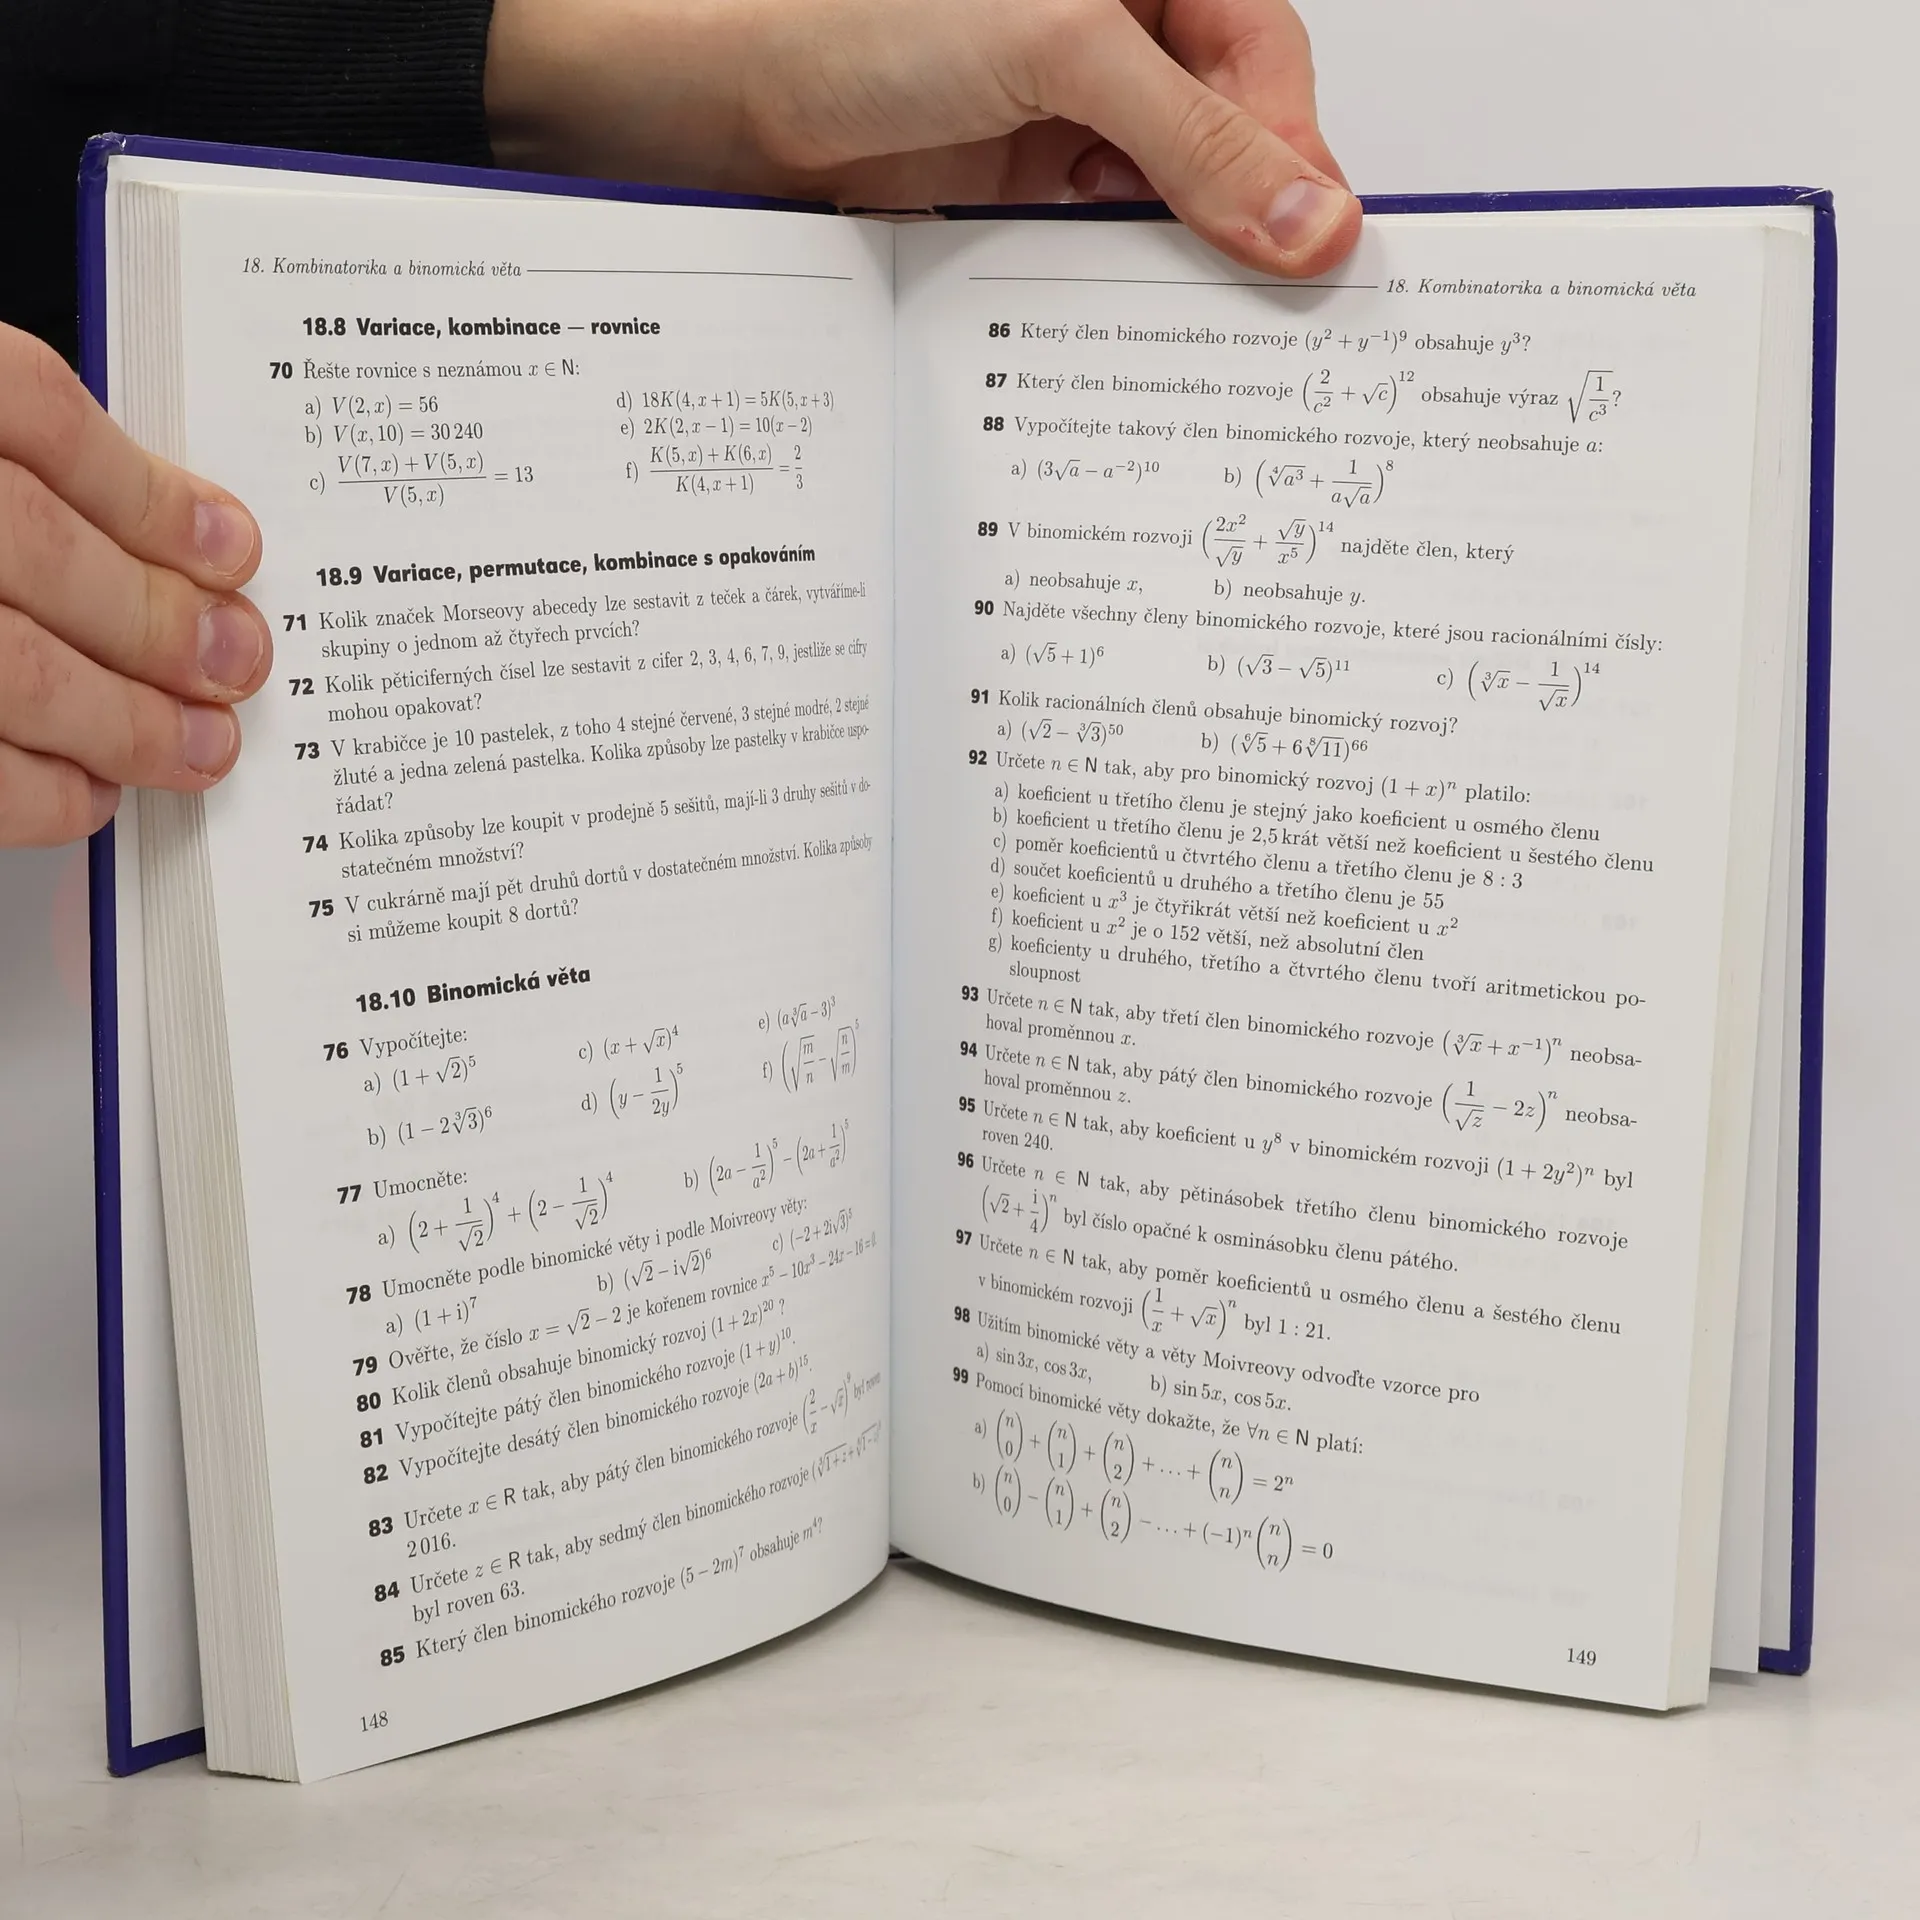 18. Kombinatorika a binomická věta
18.8 Variace, kombinace — rovnice
70 Řešte rovnice s neznámou x ∈ N:
a) V(2, x) = 56
d) 18K(4, x + 1) = 5K(5, x + 3)
b) V(x, 10) = 30 240
e) 2K(2, x − 1) = 10(x − 2)
c) (V(7, x) + V(5, x))/V(5, x) = 13
f) (K(5, x) + K(6, x))/K(4, x + 1) = 2/3
18.9 Variace, permutace, kombinace s opakováním
71 Kolik značek Morseovy abecedy lze sestavit z teček a čárek, vytváříme-li
skupiny o jednom až čtyřech prvcích?
72 Kolik pěticiferných čísel lze sestavit z cifer 2, 3, 4, 6, 7, 9, jestliže se cifry
mohou opakovat?
73 V krabičce je 10 pastelek, z toho 4 stejné červené, 3 stejné modré, 2 stejné
žluté a jedna zelená pastelka. Kolika způsoby lze pastelky v krabičce uspo-
řádat?
74 Kolika způsoby lze koupit v prodejně 5 sešitů, mají-li 3 druhy sešitů v do-
statečném množství?
75 V cukrárně mají pět druhů dortů v dostatečném množství. Kolika způsoby
si můžeme koupit 8 dortů?
18.10 Binomická věta
76 Vypočítejte:
a) (1 + √2)⁵
c) (x + √x)⁴
e) (a∛a − 3)³
b) (1 − 2∛3)⁶
d) (y − 1/(2y))⁵
f) (√(m/n) − √(n/m))⁵
77 Umocněte:
a) (2 + 1/√2)⁴ + (2 − 1/√2)⁴
b) (2a − 1/a²)⁵ − (2a + 1/a²)⁵
78 Umocněte podle binomické věty i podle Moivreovy věty:
a) (1 + i)⁷
b) (√2 − i√2)⁶
c) (−2 + 2i√3)⁵
79 Ověřte, že číslo x = √2 − 2 je kořenem rovnice x⁵ − 10x³ − 24x − 16 = 0.
80 Kolik členů obsahuje binomický rozvoj (1 + 2x)²⁰ ?
81 Vypočítejte pátý člen binomického rozvoje (1 + y)¹⁰.
82 Vypočítejte desátý člen binomického rozvoje (2a + b)¹⁵.
83 Určete x ∈ R tak, aby pátý člen binomického rozvoje (2/x − √x)⁹ byl roven
2 016.
84 Určete z ∈ R tak, aby sedmý člen binomického rozvoje
byl roven 63.
85 Který člen binomického rozvoje (5 − 2m)⁷ obsahuje m⁴?
148
18. Kombinatorika a binomická věta
86 Který člen binomického rozvoje (y² + y⁻¹)⁹ obsahuje y³?
87 Který člen binomického rozvoje (2/c² + √c)¹² obsahuje výraz √(1/c³)?
88 Vypočítejte takový člen binomického rozvoje, který neobsahuje a:
a) (3√a − a⁻²)¹⁰
b) (∜a³ + 1/(a√a))⁸
89 V binomickém rozvoji (2x²/√y + √y/x⁵)¹⁴ najděte člen, který
a) neobsahuje x,
b) neobsahuje y.
90 Najděte všechny členy binomického rozvoje, které jsou racionálními čísly:
a) (√5 + 1)⁶
b) (√3 − √5)¹¹
c) (∛x − 1/√x)¹⁴
91 Kolik racionálních členů obsahuje binomický rozvoj?
a) (√2 − ∛3)⁵⁰
b) (⁶√5 + 6⁸√11)⁶⁶
92 Určete n ∈ N tak, aby pro binomický rozvoj (1 + x)ⁿ platilo:
a) koeficient u třetího členu je stejný jako koeficient u osmého členu
b) koeficient u třetího členu je 2,5 krát větší než koeficient u šestého členu
c) poměr koeficientů u čtvrtého členu a třetího členu je 8 : 3
d) součet koeficientů u druhého a třetího členu je 55
e) koeficient u x³ je čtyřikrát větší než koeficient u x²
f) koeficient u x² je o 152 větší, než absolutní člen
g) koeficienty u druhého, třetího a čtvrtého členu tvoří aritmetickou po-
sloupnost
93 Určete n ∈ N tak, aby třetí člen binomického rozvoje (∛x + x⁻¹)ⁿ neobsa-
hoval proměnnou x.
94 Určete n ∈ N tak, aby pátý člen binomického rozvoje (1/√z − 2z)ⁿ neobsa-
hoval proměnnou z.
95 Určete n ∈ N tak, aby koeficient u y⁸ v binomickém rozvoji (1 + 2y²)ⁿ byl
roven 240.
96 Určete n ∈ N tak, aby pětinásobek třetího členu binomického rozvoje
(√2 + i/4)ⁿ byl číslo opačné k osminásobku členu pátého.
97 Určete n ∈ N tak, aby poměr koeficientů u osmého členu a šestého členu
v binomickém rozvoji (1/x + √x)ⁿ byl 1 : 21.
98 Užitím binomické věty a věty Moivreovy odvoďte vzorce pro
a) sin 3x, cos 3x,
b) sin 5x, cos 5x.
99 Pomocí binomické věty dokažte, že ∀n ∈ N platí:
a) (n 0) + (n 1) + (n 2) + ... + (n n) = 2ⁿ
b) (n 0) − (n 1) + (n 2) − ... + (−1)ⁿ(n n) = 0
149